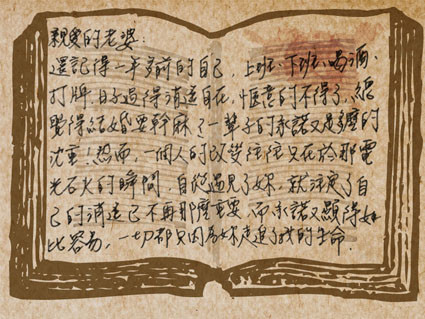 親愛的老婆:
還記得一年多前的自己,上班、下班、喝酒、
打牌,日子過得消遙自在,愜意的不得了,總
覺得結婚要幹麻?一輩子的承諾又是多麼的
沈重!然而,一個人的改變往往只在於那電
光石火的瞬間,自從遇見了妳,就註定了自
己的消遙已不再那麼重要,而承諾又顯得如
此容易,一切都只因為妳走進了我的生命.